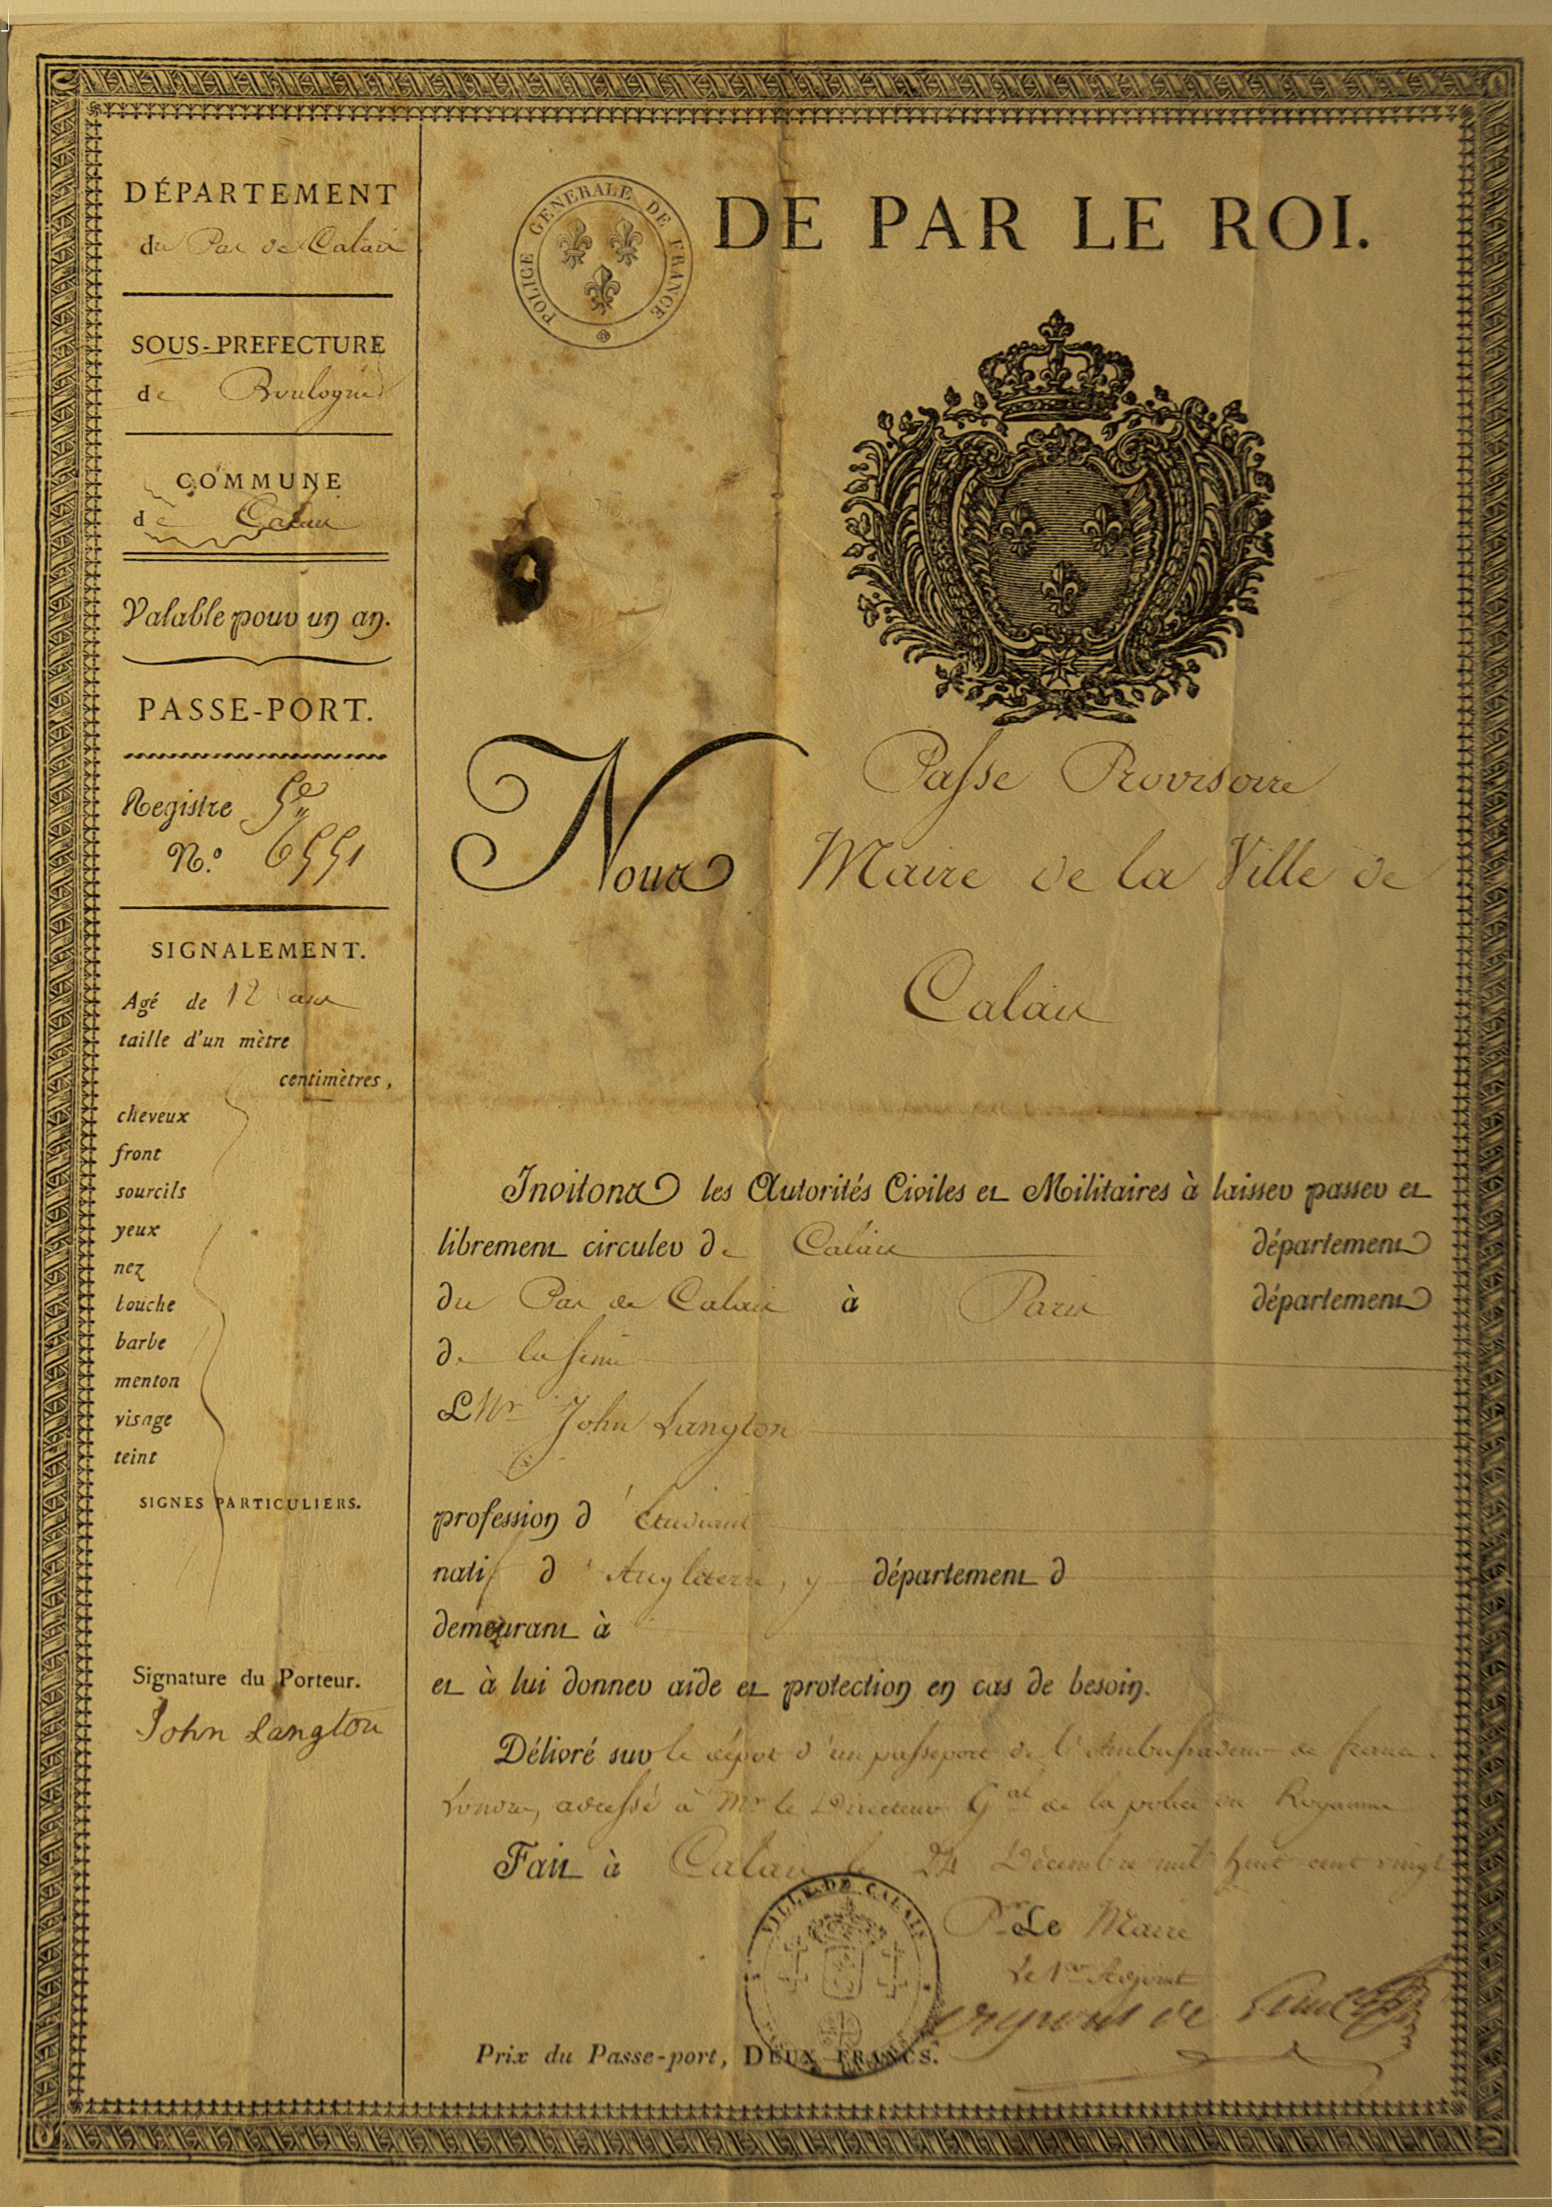 DÉPARTEMENT
du Pas de Calais
SOUS-PREFECTURE
de Boulogne
COMMUNE
de Calais
Valable pour un an.
PASSE-PORT.
Registre 5e
N.º 6551
SIGNALEMENT.
Agé de 12 ans
taille d'un mètre
centimètres,
cheveux
front
sourcils
yeux
nez
bouche
barbe
menton
visage
teint
SIGNES PARTICULIERS.
Signature du Porteur.
John Langton
POLICE GENERALE DE FRANCE
DE PAR LE ROI.
Passe Provisoire
Nous Maire de la Ville de
Calais
Invitons les Autorités Civiles et Militaires à laisser passer et
librement circuler de Calais département
du Pas de Calais à Paris département
de la Seine
L Mr John Langton
profession d'Etudiant
natif d'Angleterre, y département d
demeurant à
et à lui donner aide et protection en cas de besoin.
Délivré sur le dépot d'un passeport de l'Ambassadeur de france
Londres, adressé à Mr le Directeur Gal de la police du Royaume
Fait à Calais le 24 Décembre mil huit cent vingt
Pr Le Maire
Le 1er Adjoint
VILLE DE CALAIS
Prix du Passe-port, DEUX FRANCS.